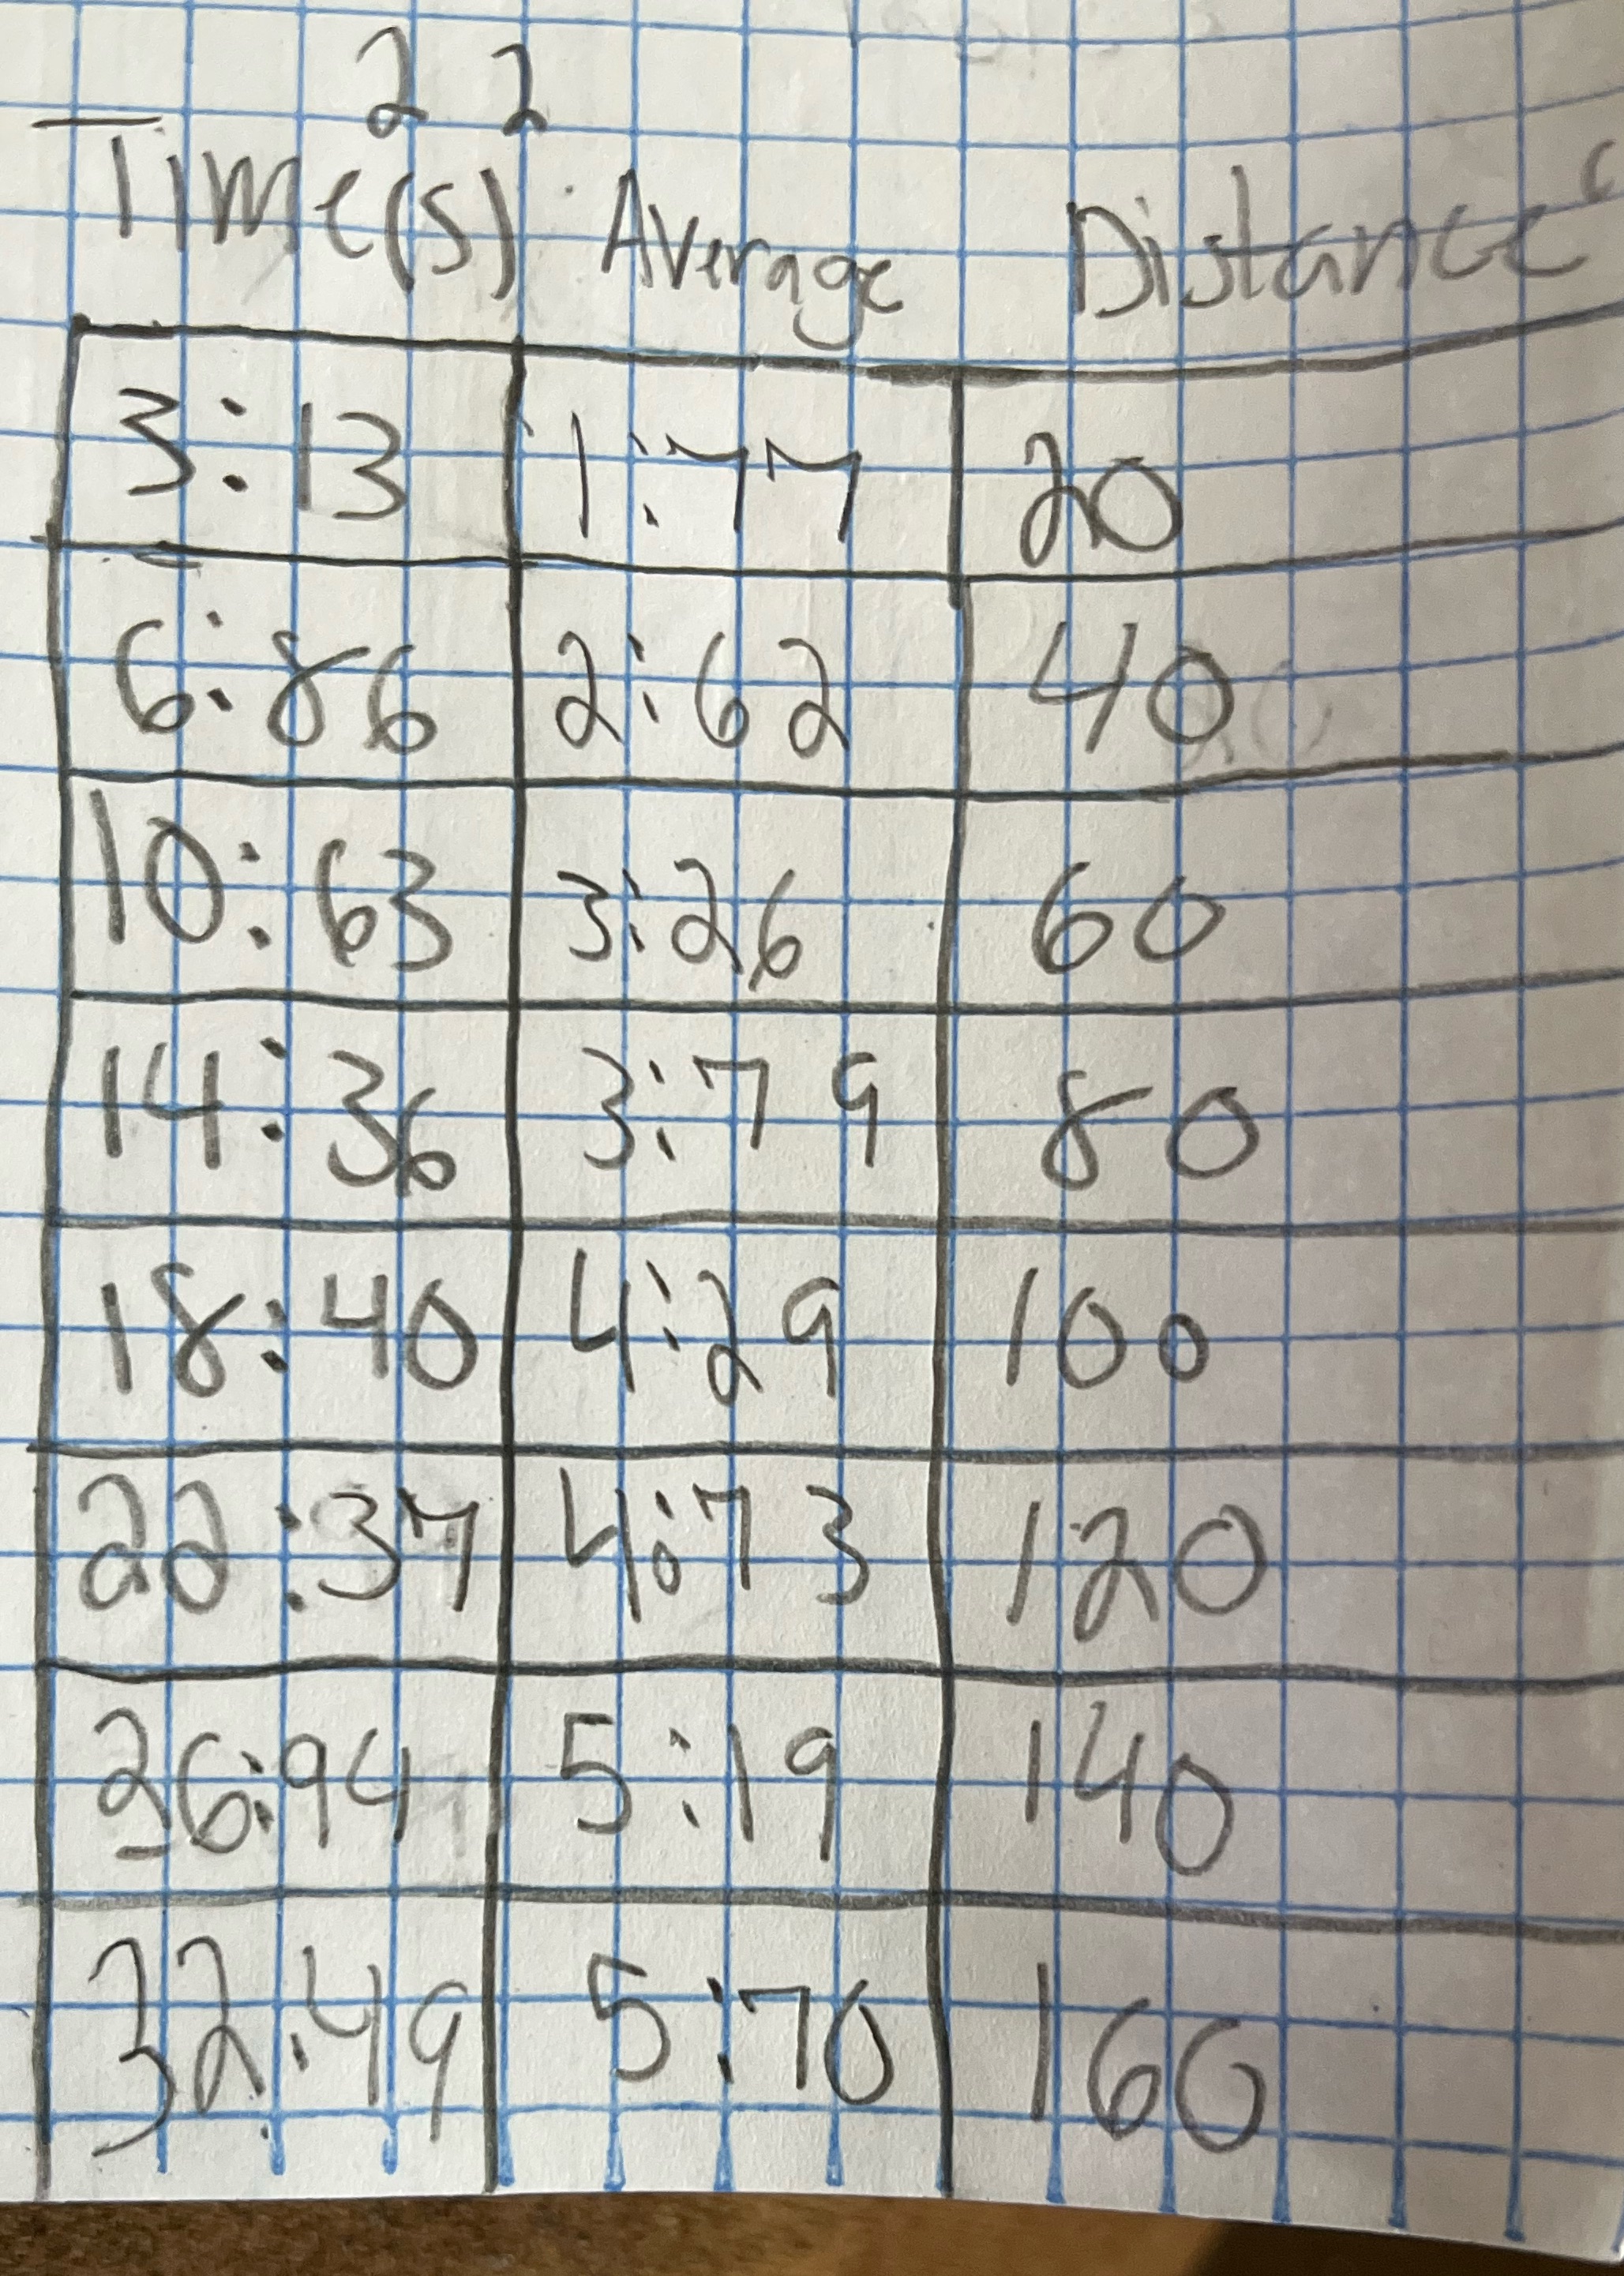 2 2
Time(s) Average Distance
3:13 1:77 20
6:86 2:62 40
10:63 3:26 60
14:36 3:79 80
18:40 4:29 100
22:37 4:73 120
26:94 5:19 140
32:49 5:70 160